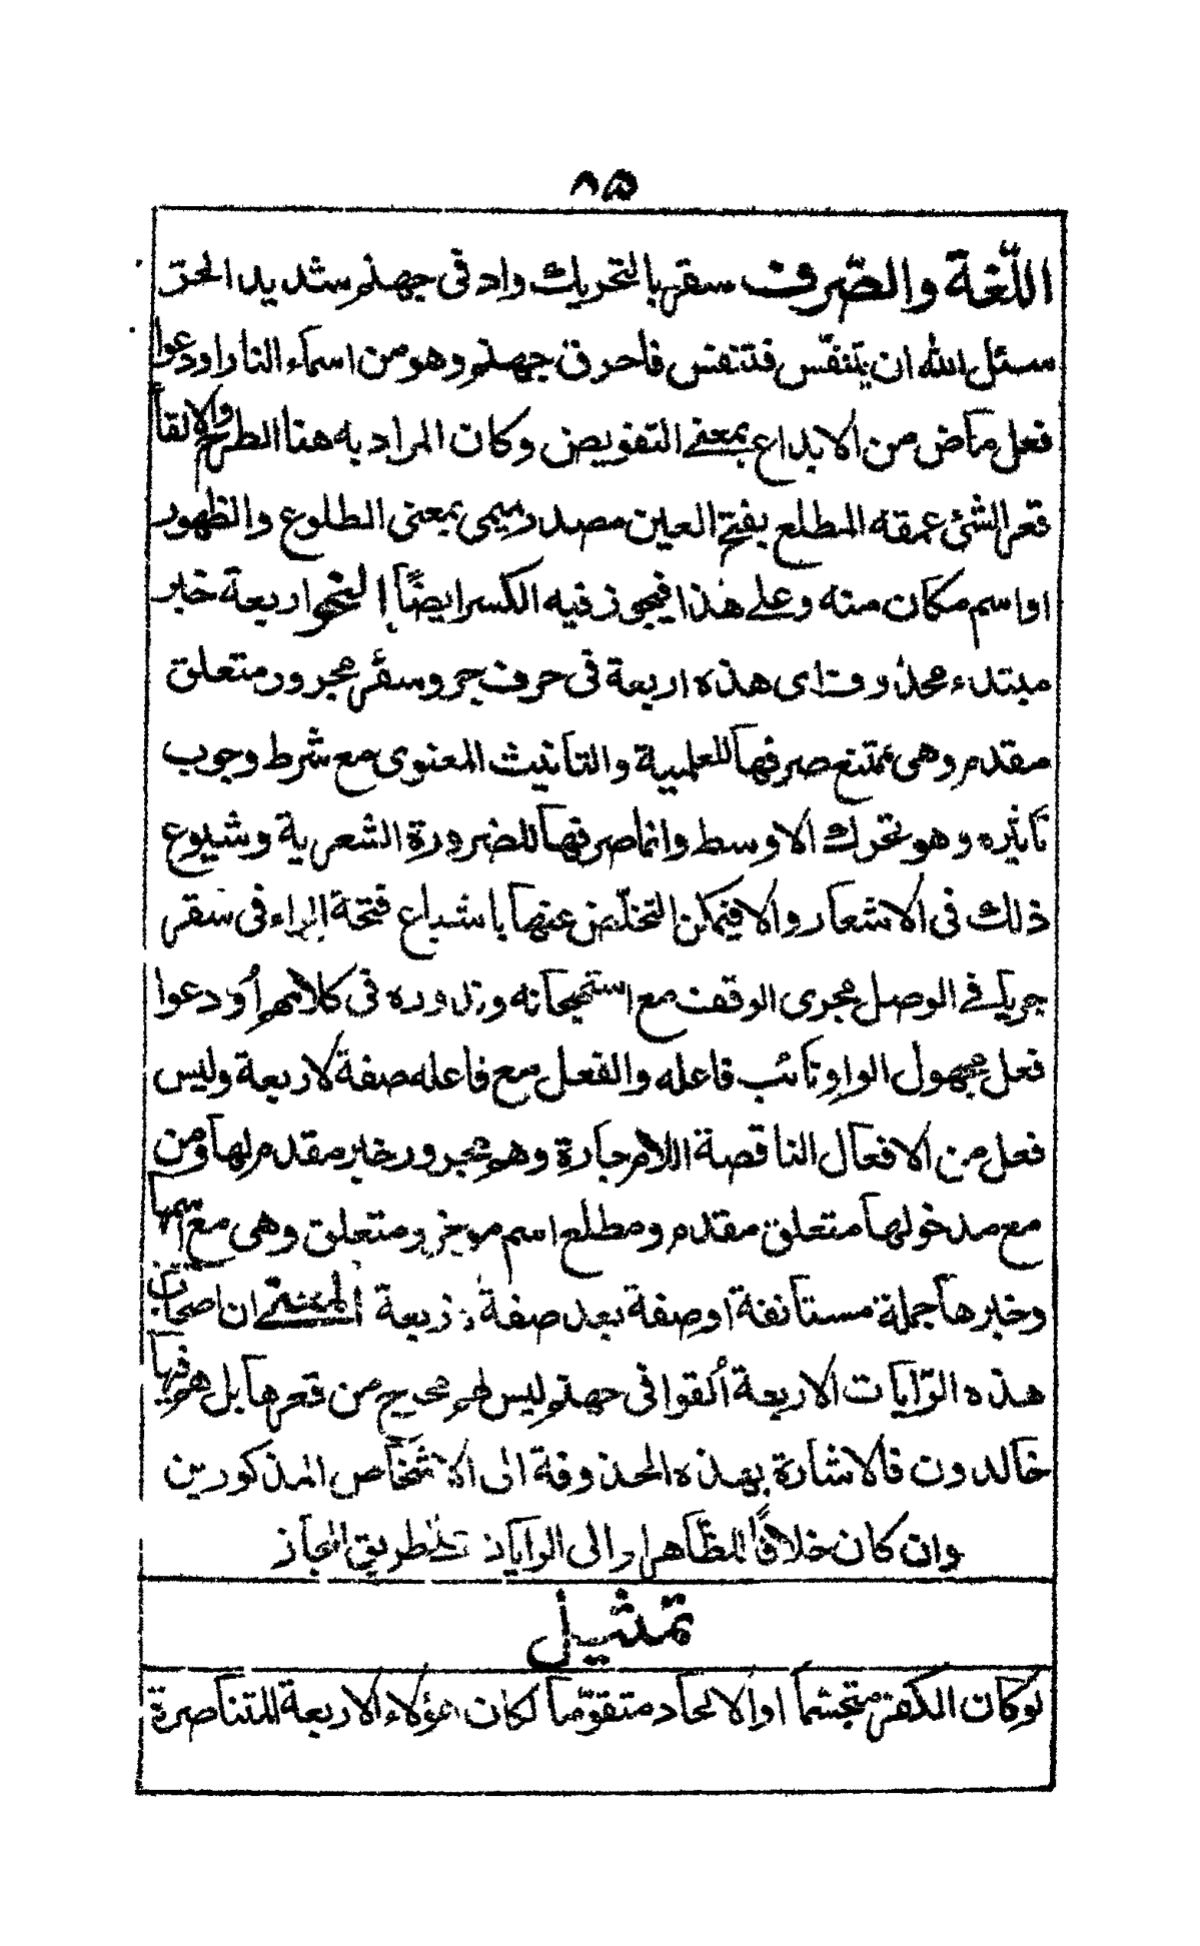 ۸۵
اللّغة والصّرف سقر بالتحریك وادفی جهنم شدید الحرّ
سئل الله ان یتنفّس فتنفس فاحرق جهنم وهو من اسماء النار اودعوا
فعل ماض من الایداع بمعنے التفویض وکان المراد به هنا الطرح والالقاء
قعر الشئ عمقه المطلع بفتح العین مصدر میمی بمعنی الطلوع والظهور
او اسم مکان منه وعلے هذا فیجوز فیه الکسر ایضًا النحو اربعة خبر
مبتدء محذوف ای هذه اربعة فی حرف جر وسقر مجرور متعلق
مقدم وهی ممتنع صرفها للعلمیة والتانیث المعنوی مع شرط وجوب
تاثیره وهو تحرك الاوسط وانما صرفها للضرورة الشعریة وشیوع
ذلك فی الاشعار والا فیمکن التخلّص عنها باشباع فتحة الراء فی سقر
جریا فے الوصل مجری الوقف مع استهجانه وندوره فی کلامهم اُودعوا
فعل مجهول الواو نائب فاعله والفعل مع فاعله صفة لاربعة ولیس
فعل من الافعال الناقصة اللام جارة وهم مجرور خبر مقدم لها ومن
مع مدخولها متعلق مقدم ومطلع اسم موخر ومتعلق وهی مع اسمها
وخبرها جملة مستانفة او صفة بعد صفة اربعة المعنے ان اصحاب
هذه الرّایات الاربعة اُلقوا فی جهنم لیس لهم محیح من قعرها بل هم فیها
خالدون فالاشارة بهذه المحذوفة الی الاشخاص المذکورین
وان کان خلافًا للظاهر او الی الرایات علے طریق المجاز
تمثیل
لوکان الکفر متجشما او الالحاد متقوّما لکان هؤلاء الاربعة المتناصرة